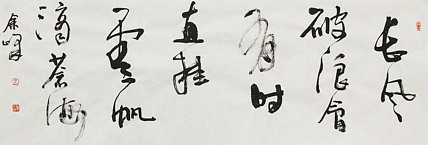 长风
破浪会
有时
直挂
云帆
济沧海
余峰